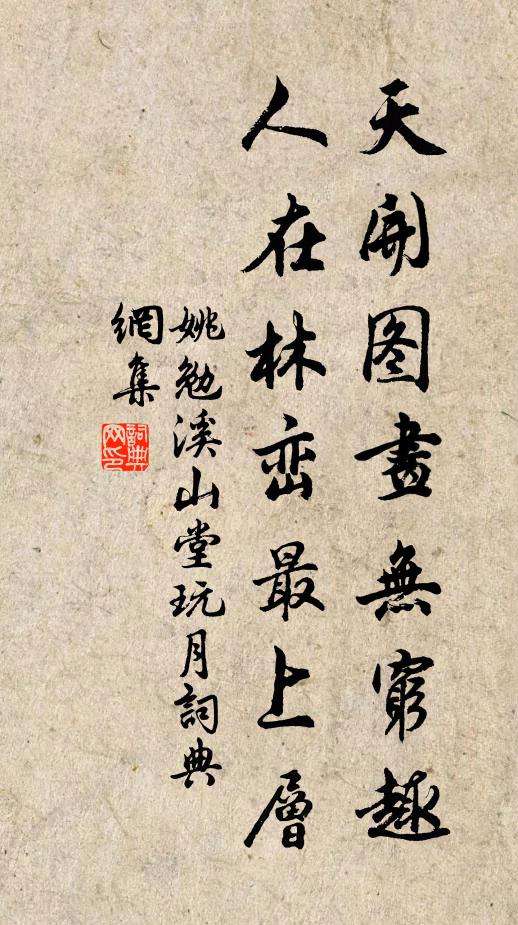 天開图畫無窮趣
人在林峦最上層
姚勉溪山堂玩月詞典
網集
詞典
网印